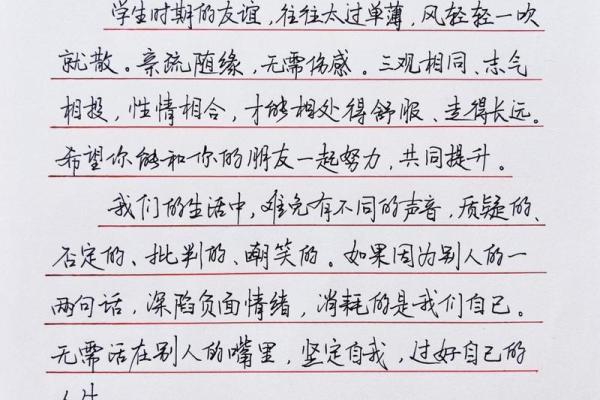 学生时期的友谊，往往太过单薄，风轻轻一吹
就散。亲疏随缘，无需伤感。三观相同、志气
相投，性情相合，才能相处得舒服、走得长远。
希望你能和你的朋友一起努力，共同提升。
我们的生活中，难免有不同的声音，质疑的、
否定的、批判的、嘲笑的。如果因为别人的一
两句话，深陷负面情绪，消耗的是我们自己。
无需活在别人的嘴里，坚定自我，过好自己的